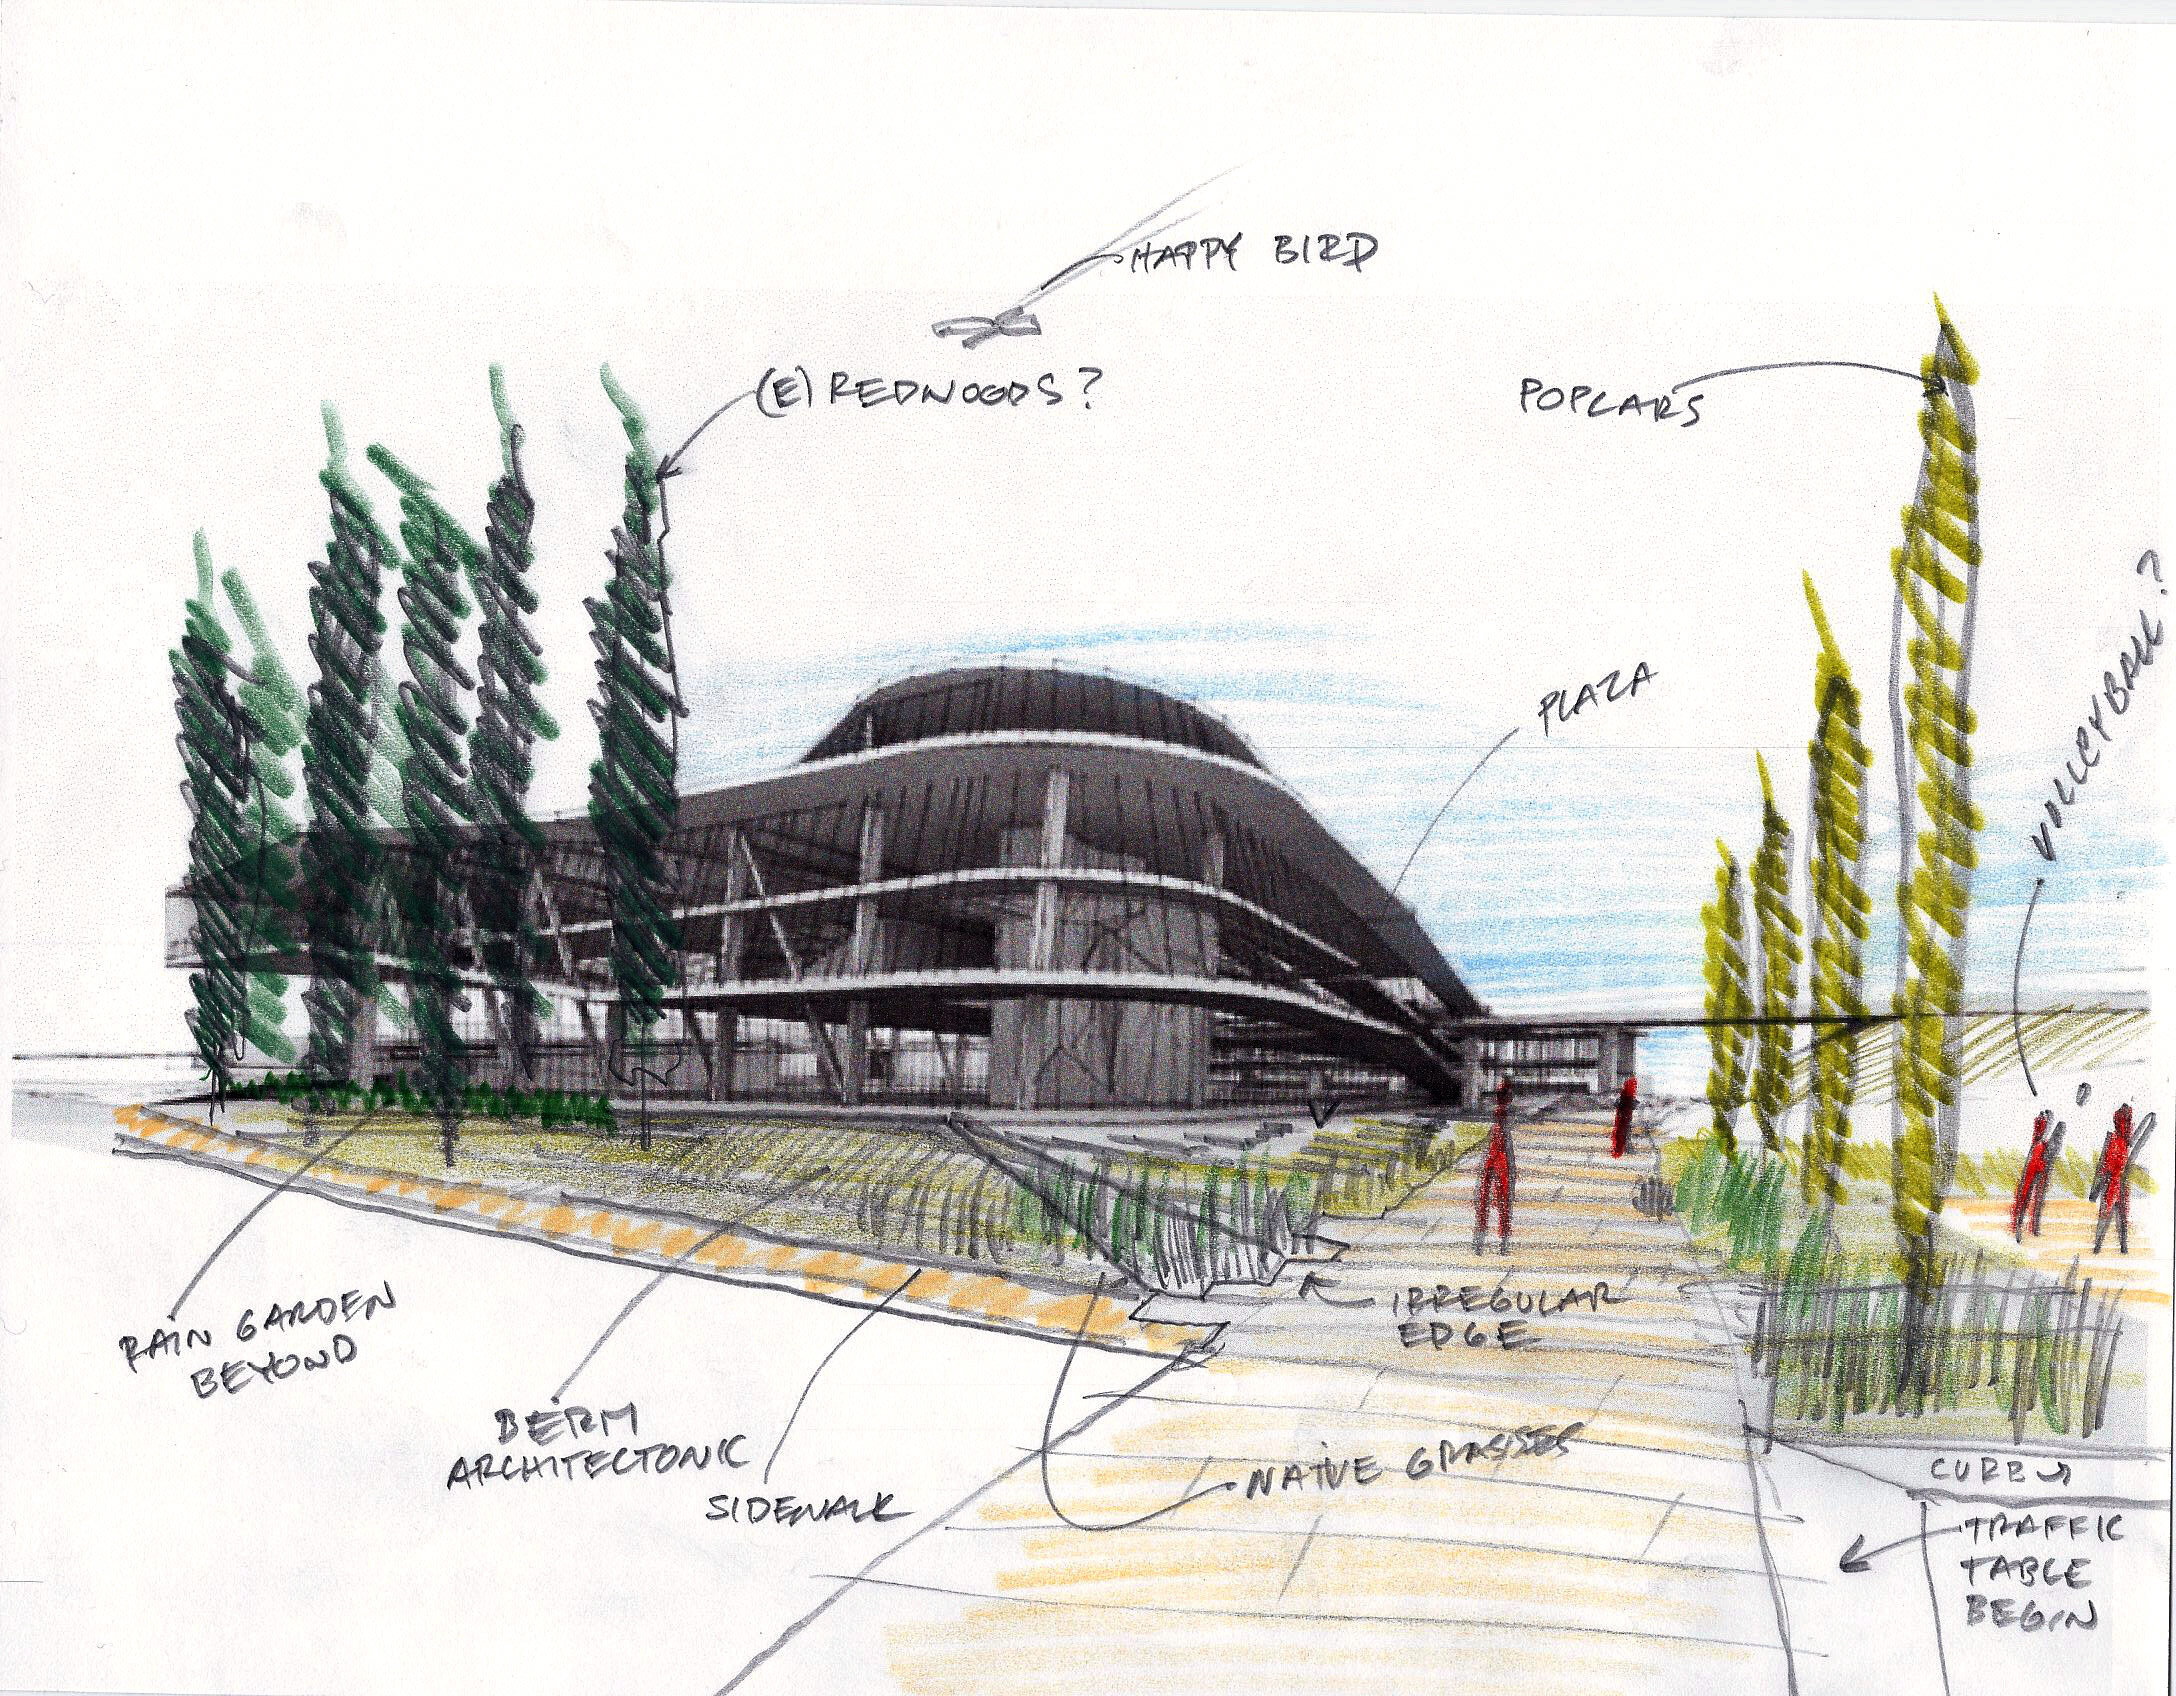 HAPPY BIRD
(E) REDWOODS?
POPLARS
PLAZA
VOLLEYBALL?
RAIN GARDEN
BEYOND
BERM
ARCHITECTONIC
SIDEWALK
IRREGULAR
EDGE
NATIVE GRASSES
CURB
TRAFFIC
TABLE
BEGIN